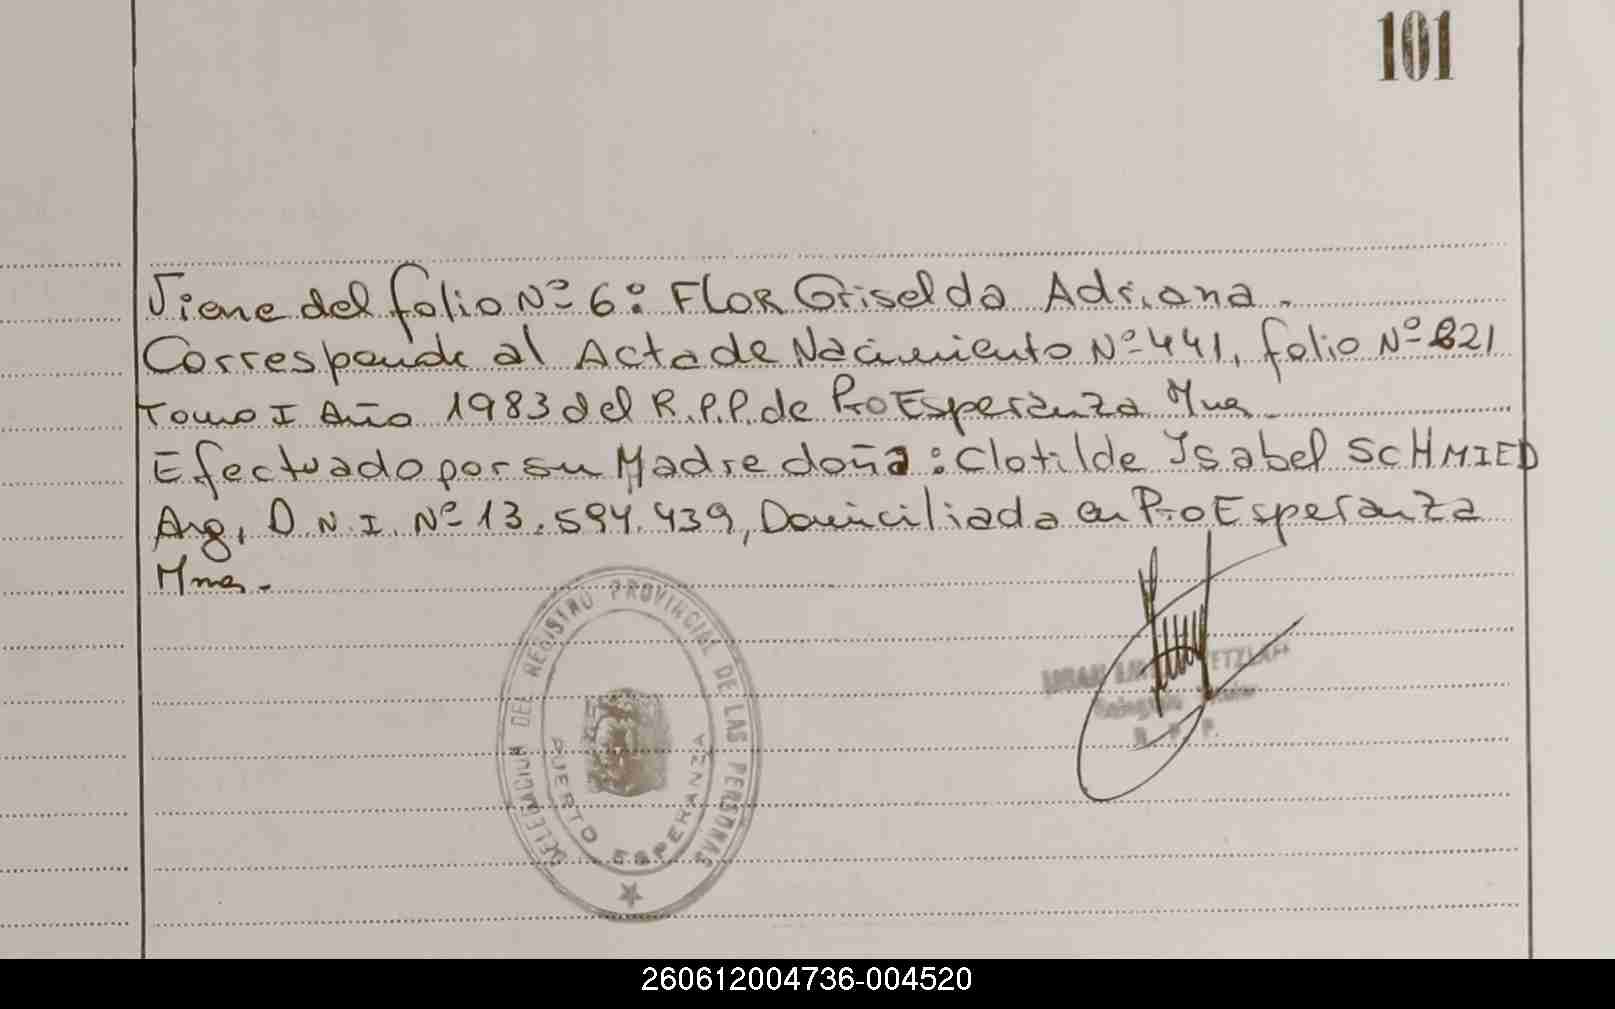 101
Viene del folio Nº 6: FLOR Griselda Adriana.
Corresponde al Acta de Nacimiento Nº 441, folio Nº 221
Tomo I Año 1983 del R.P.P. de Pto Esperanza Mnes.
Efectuado por su Madre doña: Clotilde Isabel SCHMIED
Arg, D.N.I. Nº 13.594.439, Domiciliada en Pto Esperanza
Mnes.-
DELEGACION DEL REGISTRO PROVINCIAL DE LAS PERSONAS
PUERTO ESPERANZA
R. P. P.
260612004736-004520